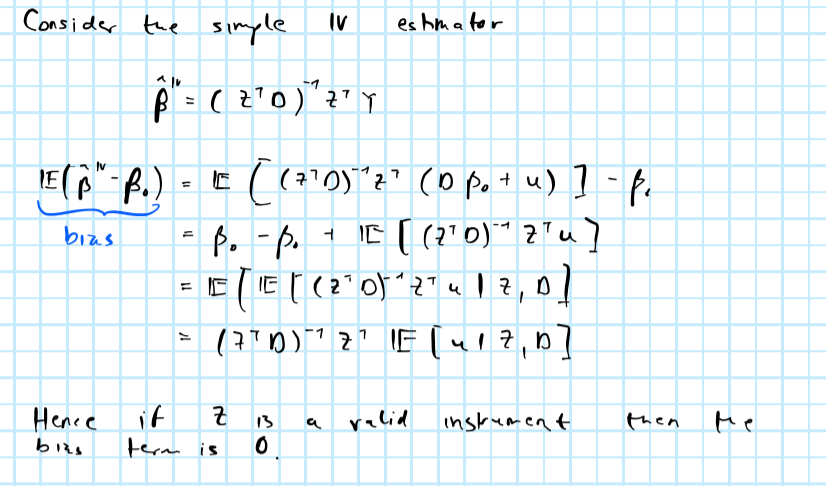 Consider the simple IV estimator
β̂ᴵⱽ = ( Zᵀ D )⁻¹ Zᵀ Y
𝔼(β̂ᴵⱽ - β₀) = 𝔼 [ (ZᵀD)⁻¹Zᵀ (D β₀ + u) ] - β₀
bias = β₀ - β₀ + 𝔼 [ (ZᵀD)⁻¹ Zᵀu ]
= 𝔼 [ 𝔼 [ (ZᵀD)⁻¹Zᵀ u | Z, D ]
= (ZᵀD)⁻¹ Zᵀ 𝔼 [ u | Z, D ]
Hence if Z is a valid instrument then the
bias term is 0.